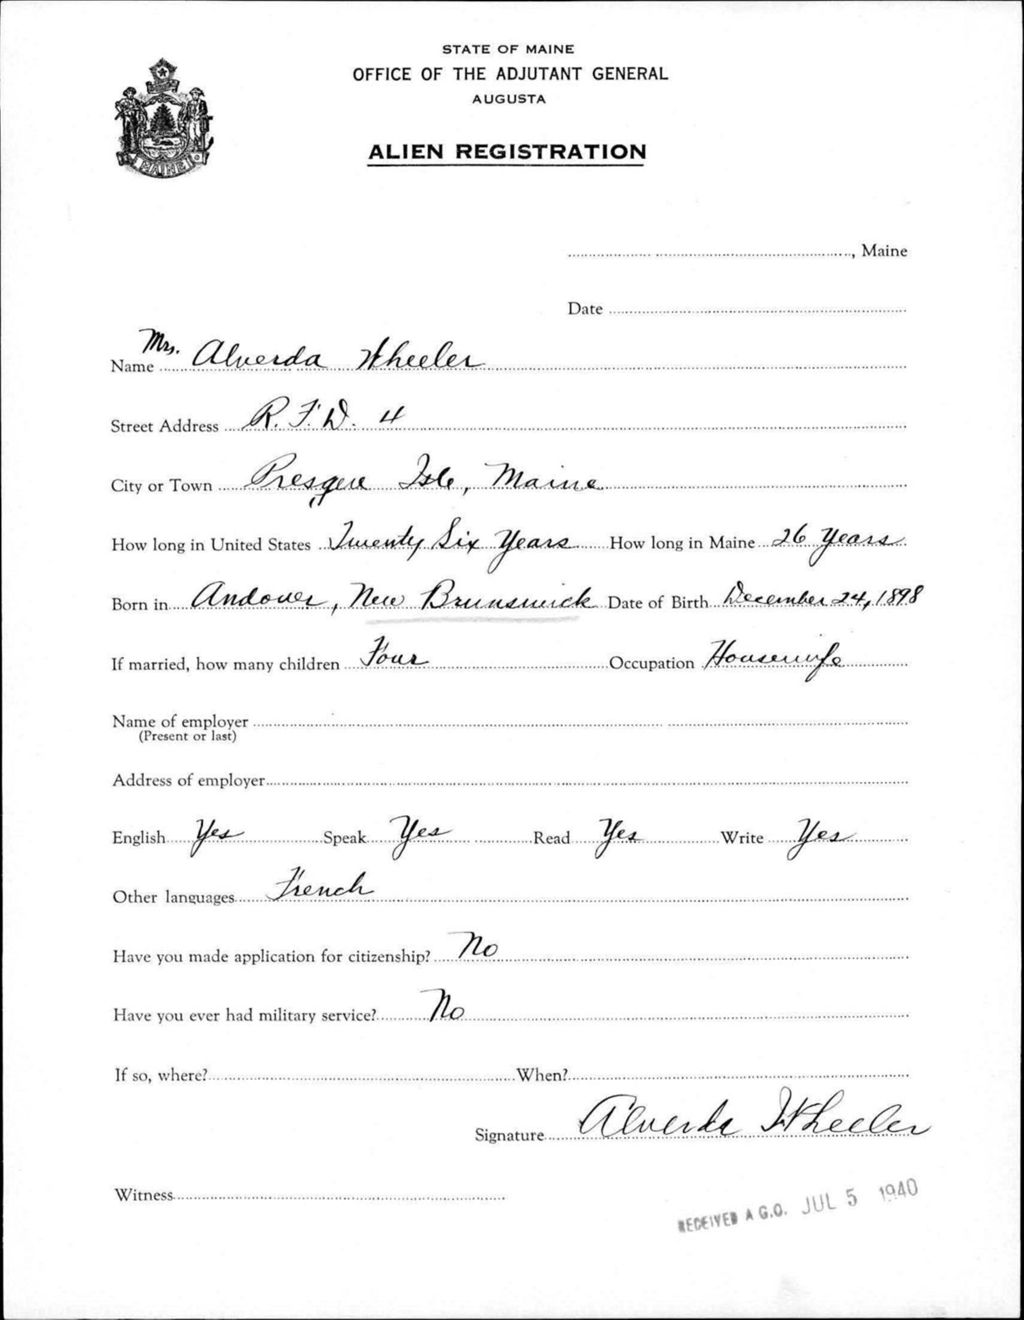 STATE OF MAINE
OFFICE OF THE ADJUTANT GENERAL
AUGUSTA
ALIEN REGISTRATION
MAINE
, Maine
Date
Name Mrs. Alverda Wheeler
Street Address R. F. D. 4
City or Town Presque Isle, Maine
How long in United States Twenty Six Years How long in Maine 26 Years
Born in Andover, New Brunswick Date of Birth December 24, 1898
If married, how many children Four Occupation Housewife
Name of employer
(Present or last)
Address of employer
English Yes Speak Yes Read Yes Write Yes
Other languages French
Have you made application for citizenship? No
Have you ever had military service? No
If so, where? When?
Signature Alverda Wheeler
Witness
RECEIVED A.G.O. JUL 5 1940